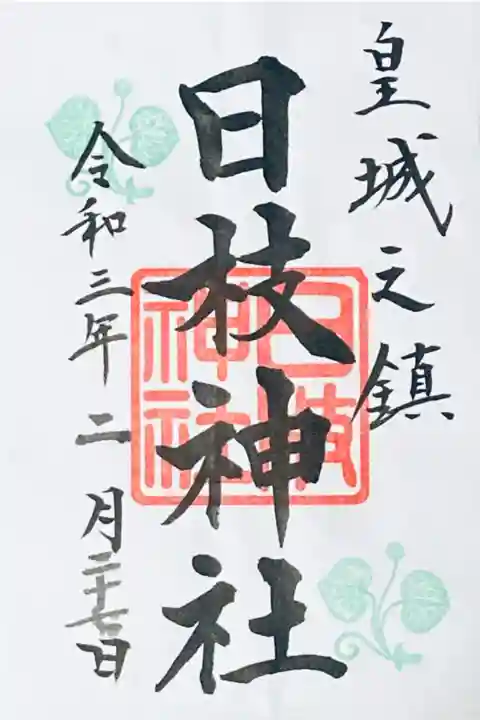 皇城之鎮
日枝神社
令和三年二月二十七日
日枝神社